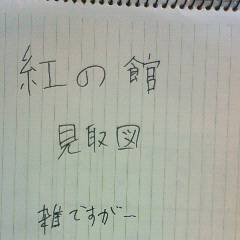 紅の館
見取図
雑ですが…